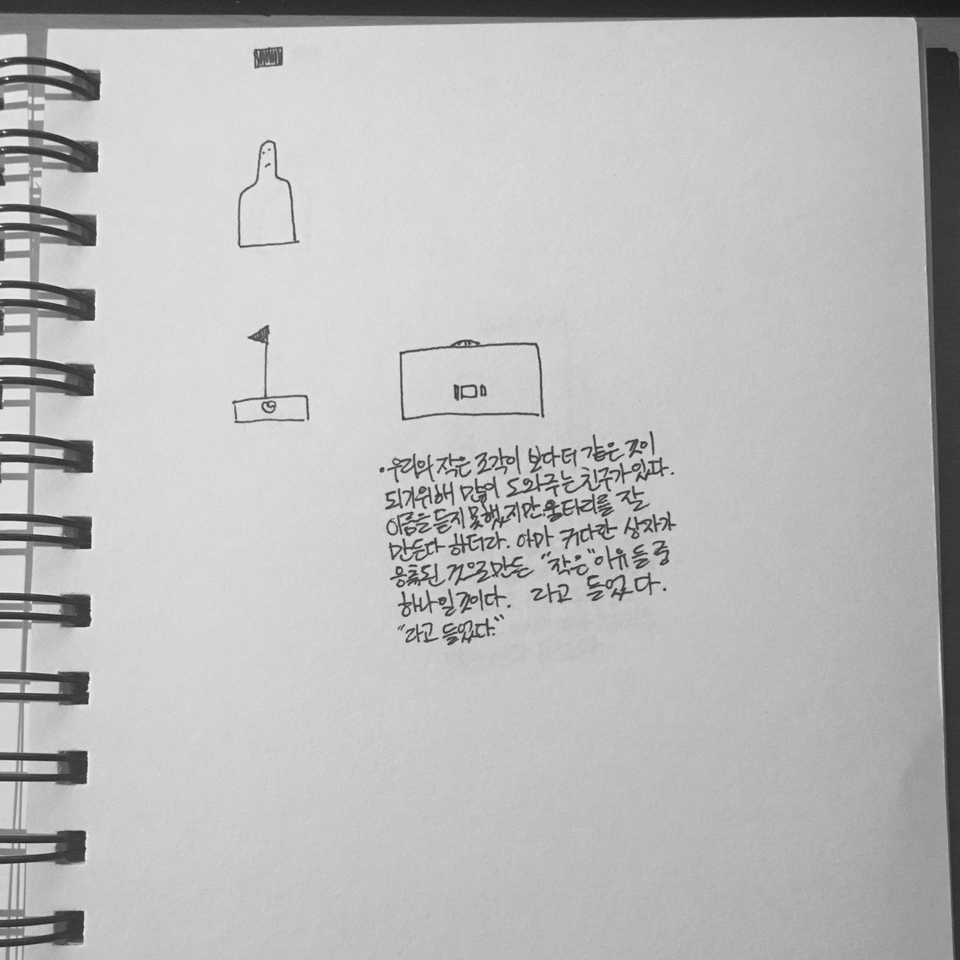 ·우리의 작은 조각이 보다 더 같은 것이
되기위해 많이 도와주는 친구가 있다.
이름을 듣지 못했지만 울타리를 잘
만든다 하더라. 아마 커다란 상자가
응축된 것으로 만든 "작은" 이유들 중
하나일 것이다. 라고 들었다.
"라고 들었다."